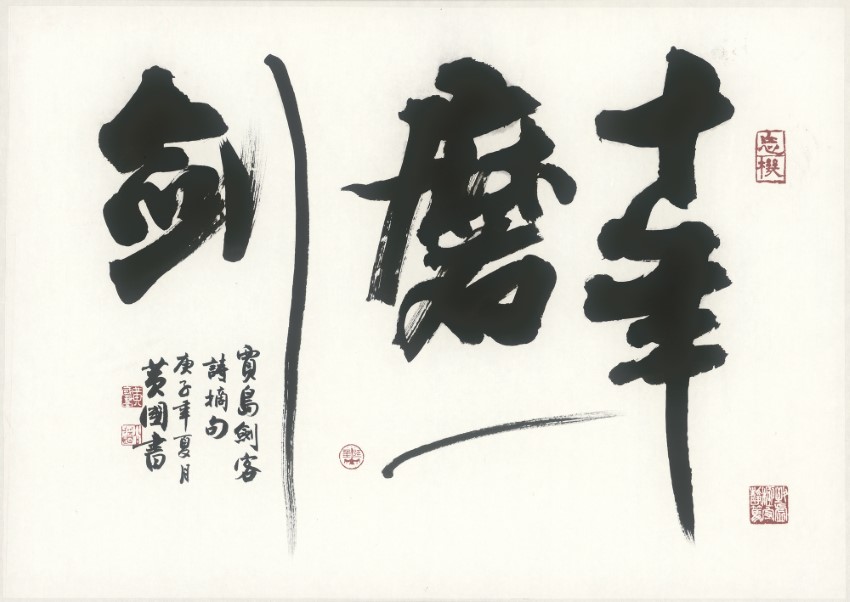 忘機
十年
磨一
剑
賈島剑客
詩摘句
庚子年夏月
黄國書